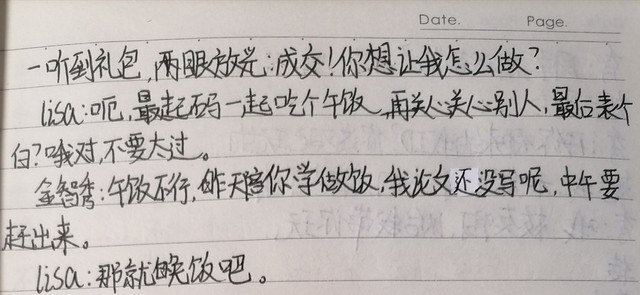 Date.          Page.
一听到礼包,两眼放光:成交!你想让我怎么做?
lisa:呃,最起码一起吃个午饭,再关心关心别人,最后表个
白?哦对,不要太过。
金智秀:午饭不行,昨天陪你学做饭,我论文还没写呢,中午要
赶出来。
lisa:那就晚饭吧。